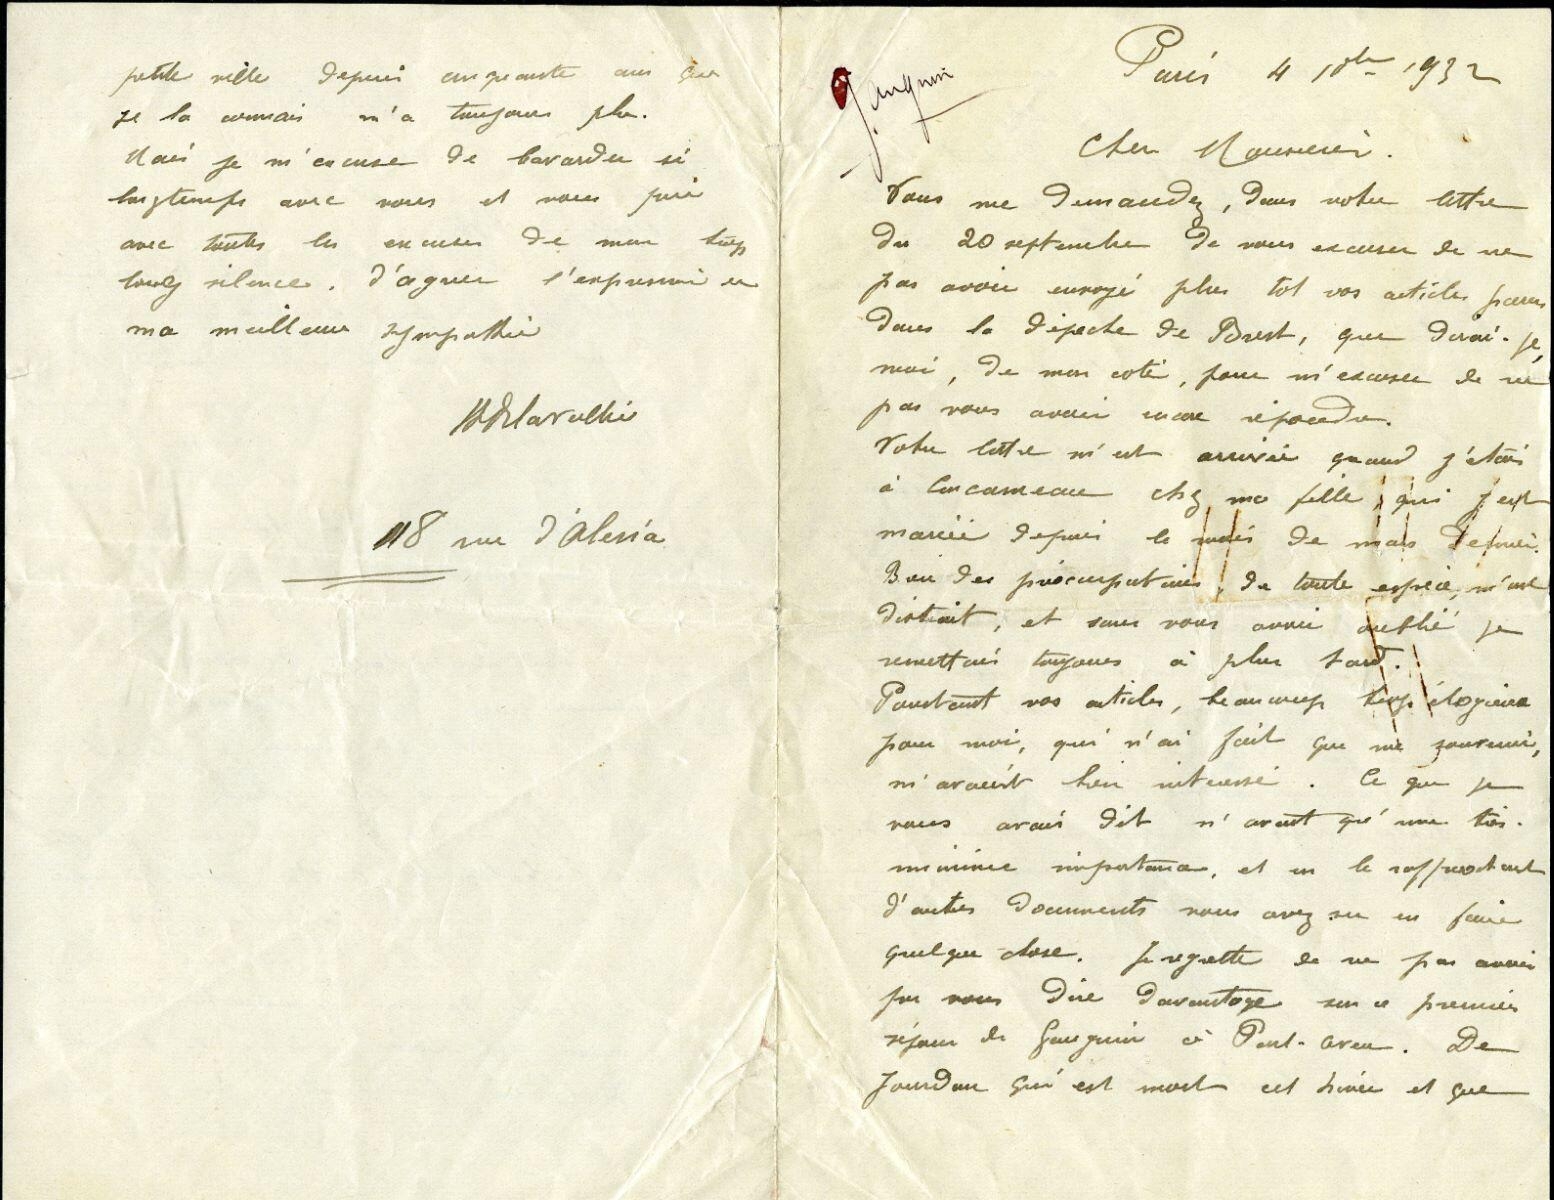 Gauguin
Paris 4 10bre 1932
Cher Monsieur.
Vous me demandez, dans votre lettre
du 20 septembre de vous excuser de ne
pas avoir envoyé plus tot vos articles parus
dans la dépeche de Brest, que dirai-je,
moi, de mon coté, pour m'excuser de ne
pas vous avoir encore répondu.
Votre lettre m'est arrivée quand j'étais
à Concarneau chez ma fille, qui s'est
mariée depuis le mois de mars dernier.
Bien des préocupations, de toute espèce, m'ont
distrait, et sans vous avoir oublié je
remettais toujours à plus tard.
Pourtant vos articles, beaucoup trop élogieux
pour moi, qui n'ai fait que me souvenir,
m'avaient bien interessé. Ce que je
vous avais dit n'avait qu'une très
minime importance, et en le rapprochant
d'autres documents vous avez su en faire
quelque chose. Je regrette de ne pas avoir
pu vous dire davantage sur ce premier
séjour de Gauguin à Pont-Aven. De
Jourdan qui est mort cet hiver et que
petite ville depuis cinquante ans que
je la connais m'a toujours plu.
Mais je m'excuse de bavarder si
longtemps avec vous et vous prie
avec toutes les excuses de mon trop
long silence, d'agréer l'expression de
ma meilleure sympathie
HDelavallée
118 rue d'Alesia